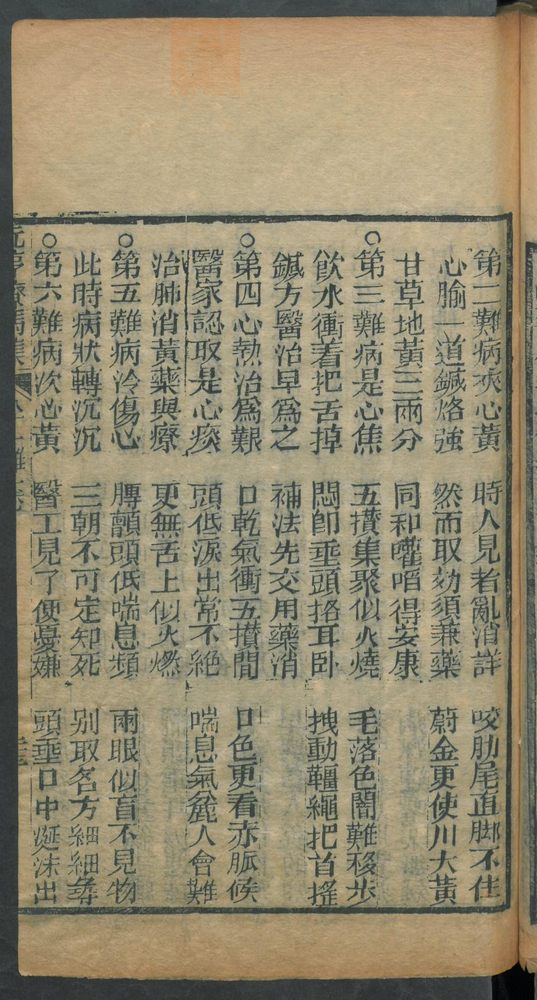 第二難病夾心黄 時人見者亂消詳 咬肋尾直脚不住
心腧一道鍼烙強 然而取効須兼藥 蔚金更使川大黃
甘草地黃三兩分 同和嚾啗得安康
○第三難病是心焦 五攅集聚似火燒 毛落色闇難移步
飲水衝着把舌掉 悶即垂頭掿耳卧 拽動韁繩把首搖
鍼方醫治早爲之 補法先交用藥消
○第四心熱治爲艱 口乾氣衝五攅間 口色更看赤脈候
醫家認取是心痰 頭低淚出常不絶 喘息氣麄人會難
治肺消黃藥與療 更無舌上似火燃
○第五難病冷傷心 膊顫頭低喘息頻 兩眼似盲不見物
此時病狀轉沉沉 三朝不可定知死 別取名方細細尋
○第六難病次心黃 醫工見了便憂嫌 頭垂口中涎沫出
元亨療馬集